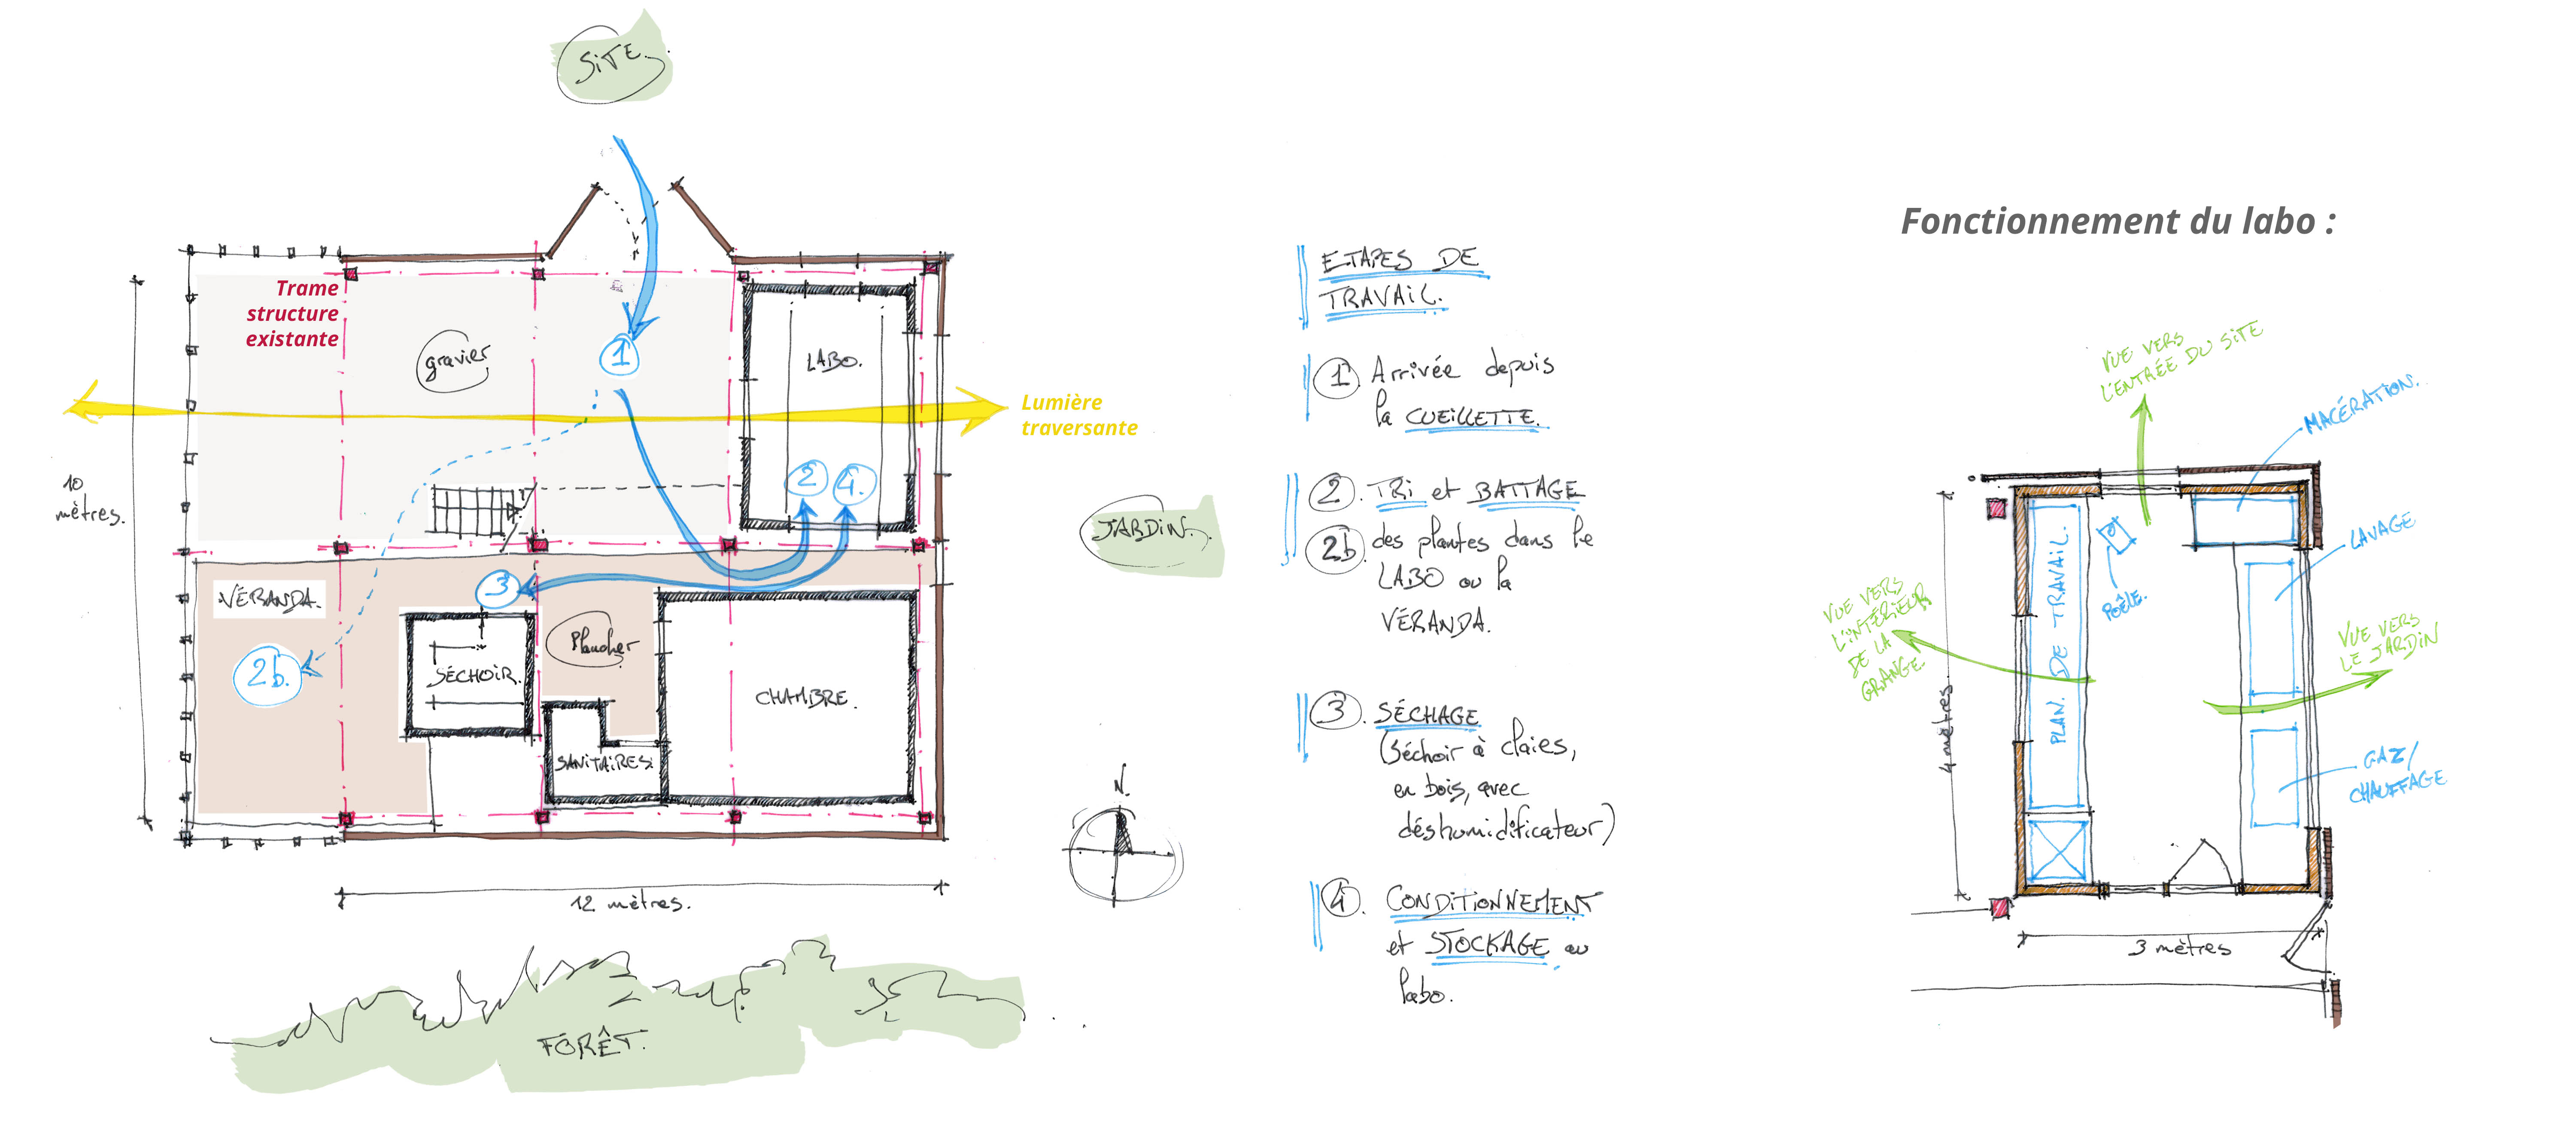 SITE.
Trame
structure
existante
gravier
1
LABO.
Lumière
traversante
2
4.
10
mètres.
JARDIN.
3
VÉRANDA.
Plancher
2b.
SÉCHOIR.
CHAMBRE.
SANITAIRES.
N.
12 mètres.
FORÊT.
ETAPES DE
TRAVAIL.
1. Arrivée depuis
la CUEILLETTE.
2. TRI et BATTAGE
2b des plantes dans le
LABO ou la
VÉRANDA.
3. SÉCHAGE
(séchoir à claies,
en bois, avec
déshumidificateur)
4. CONDITIONNEMENT
et STOCKAGE au
labo.
Fonctionnement du labo :
VUE VERS
L'ENTRÉE DU SITE
MACÉRATION.
LAVAGE
PLAN DE TRAVAIL.
POÊLE.
VUE VERS
L'INTÉRIEUR
DE LA
GRANGE.
VUE VERS
LE JARDIN
GAZ/
CHAUFFAGE
4 mètres.
3 mètres